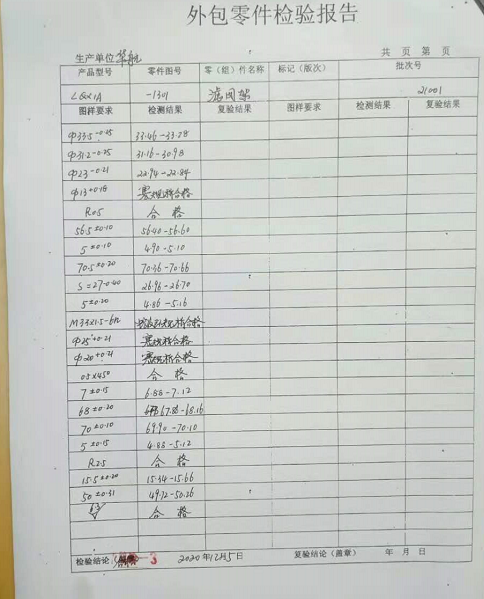 外包零件检验报告
生产单位 华航 共 页 第 页
产品型号 零件图号 零（组）件名称 标记（版次） 批次号
-1301 滤网架 21001
图样要求 检测结果 复验结果 图样要求 检测结果 复验结果
Φ33.5-0.25 33.46-33.28
Φ31.2-0.25 31.16-30.98
Φ23-0.21 22.94-22.84
Φ13+0.18 塞规检合格
R0.5 合格
56.5±0.10 56.40-56.60
5±0.10 4.90-5.10
70.5±0.20 70.36-70.66
S=27-0.40 26.96-26.70
5±0.20 4.86-5.16
M33×1.5-6h 规检合格
Φ25+0.21 塞规检合格
Φ20+0.21 塞规检合格
0.5×45° 合格
7±0.15 6.88-7.12
68±0.20 67.86-68.16
70±0.10 69.90-70.10
5±0.15 4.88-5.12
R2.5 合格
15.5±0.20 15.34-15.66
50±0.31 49.72-50.26
6.3 合格
检验结论 3 2020年12月5日 复验结论（盖章） 年 月 日